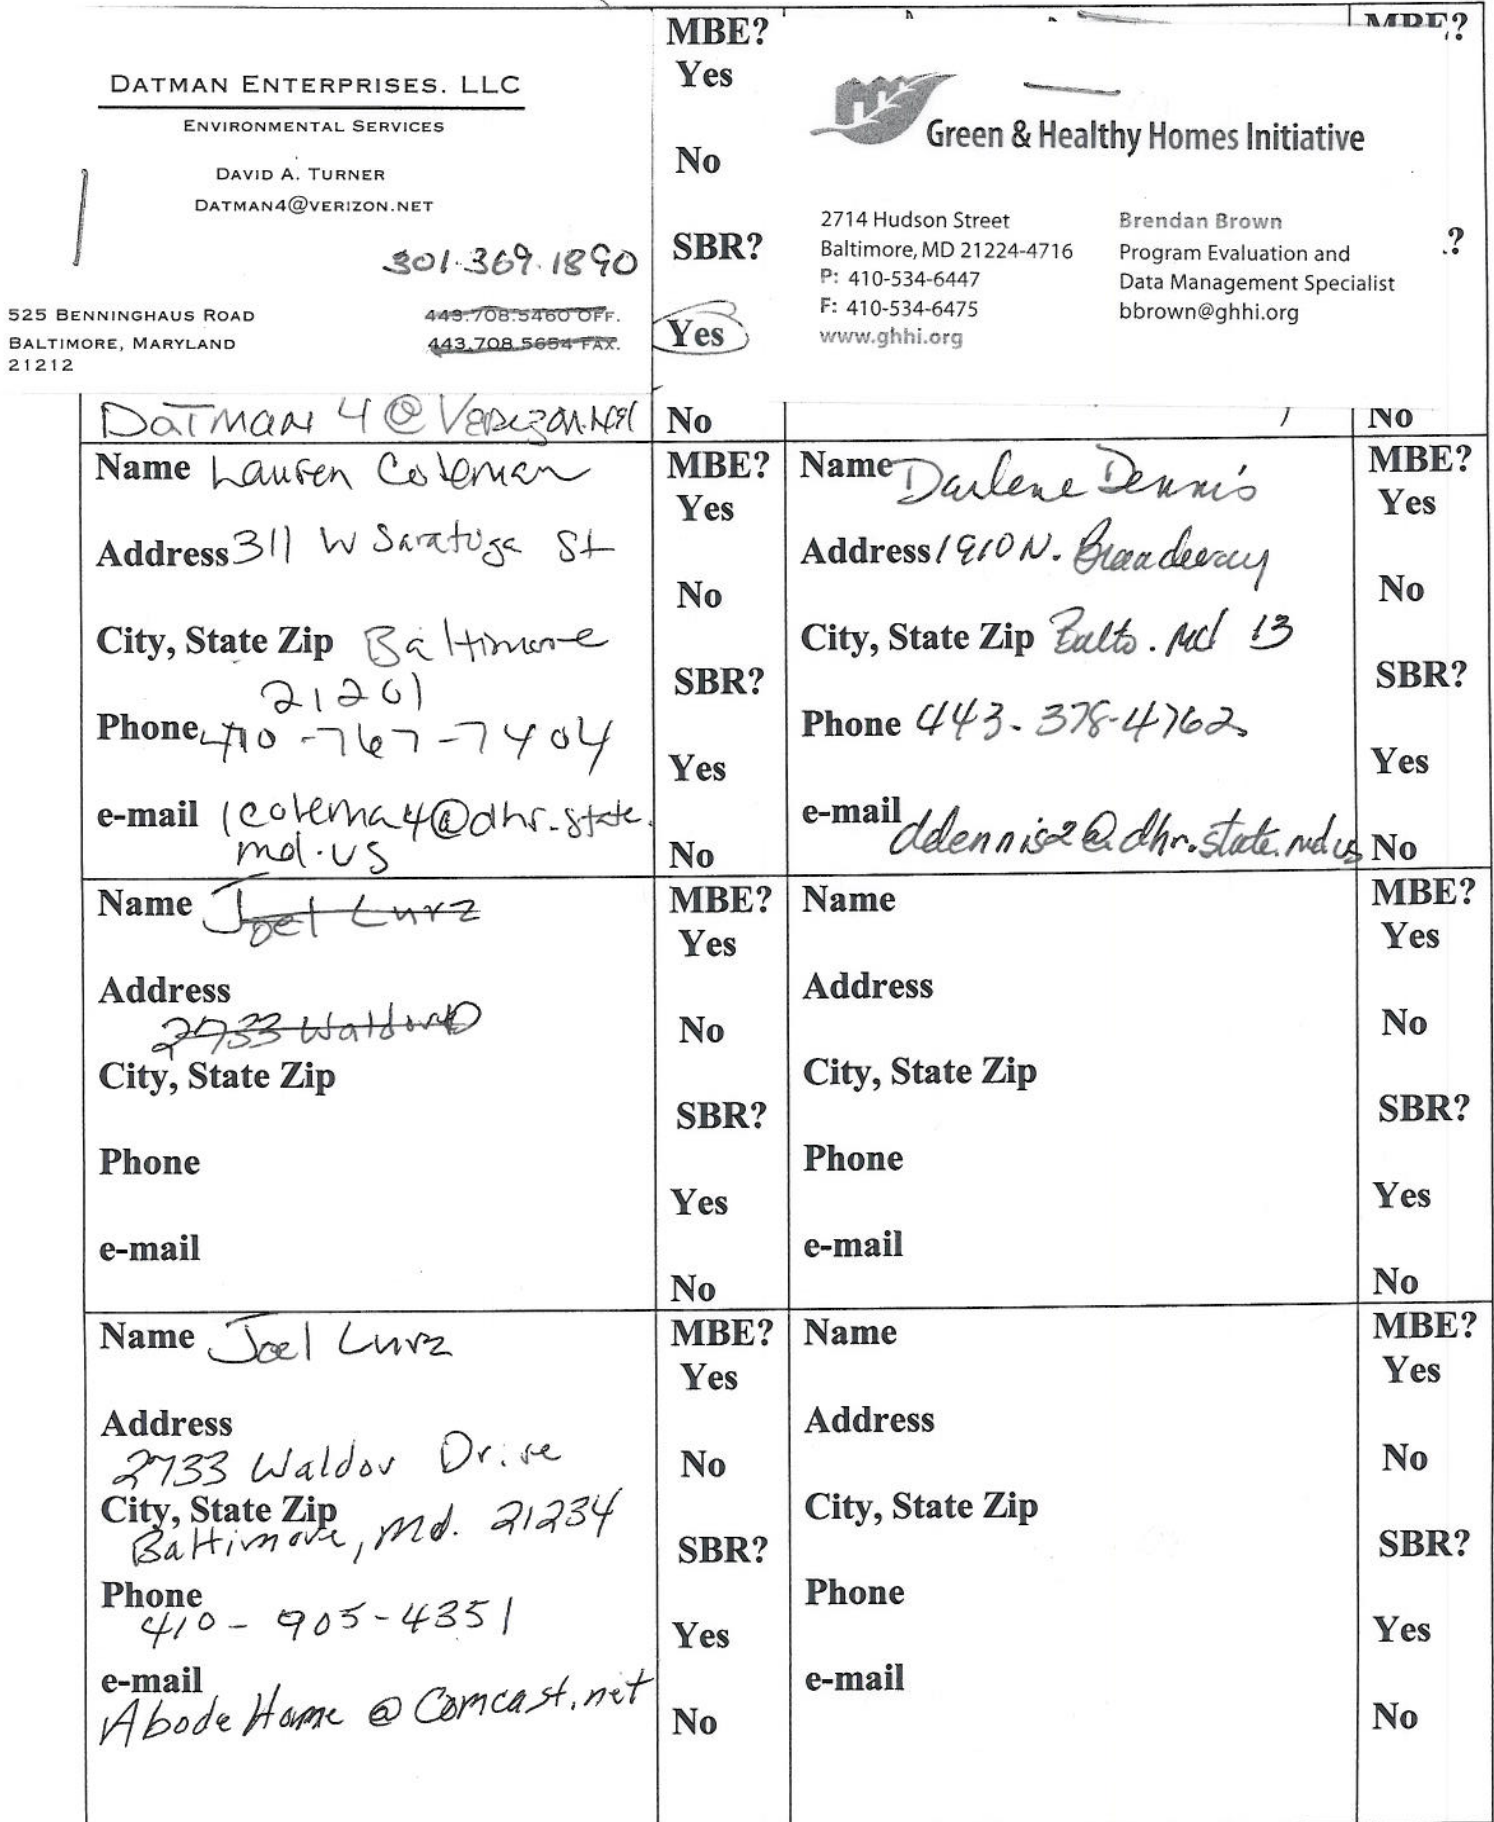 DATMAN ENTERPRISES. LLC
ENVIRONMENTAL SERVICES
DAVID A. TURNER
DATMAN4@VERIZON.NET
301.369.1890
525 BENNINGHAUS ROAD
BALTIMORE, MARYLAND
21212
443.708.5460 OFF.
443.708.5654 FAX.
DATMAN 4 @ Verizon.net
MBE?
Yes
No
SBR?
Yes
No
Green & Healthy Homes Initiative
2714 Hudson Street
Baltimore, MD 21224-4716
P: 410-534-6447
F: 410-534-6475
www.ghhi.org
Brendan Brown
Program Evaluation and
Data Management Specialist
bbrown@ghhi.org
MBE?
?
No
Name Lauren Coleman
Address 311 W Saratoga St
City, State Zip Baltimore
21201
Phone 410-767-7404
e-mail lcolema4@dhr.state.
md.us
MBE?
Yes
No
SBR?
Yes
No
Name Darlene Dennis
Address 1910 N. Broadway
City, State Zip Balto. Md 13
Phone 443-378-4762
e-mail ddennis2@dhr.state.md.us
MBE?
Yes
No
SBR?
Yes
No
Name Joel Lurz
Address
2733 Waldor
City, State Zip
Phone
e-mail
MBE?
Yes
No
SBR?
Yes
No
Name
Address
City, State Zip
Phone
e-mail
MBE?
Yes
No
SBR?
Yes
No
Name Joel Lurz
Address
2733 Waldor Drive
City, State Zip
Baltimore, Md. 21234
Phone
410-905-4351
e-mail
AbodeHome@Comcast.net
MBE?
Yes
No
SBR?
Yes
No
Name
Address
City, State Zip
Phone
e-mail
MBE?
Yes
No
SBR?
Yes
No